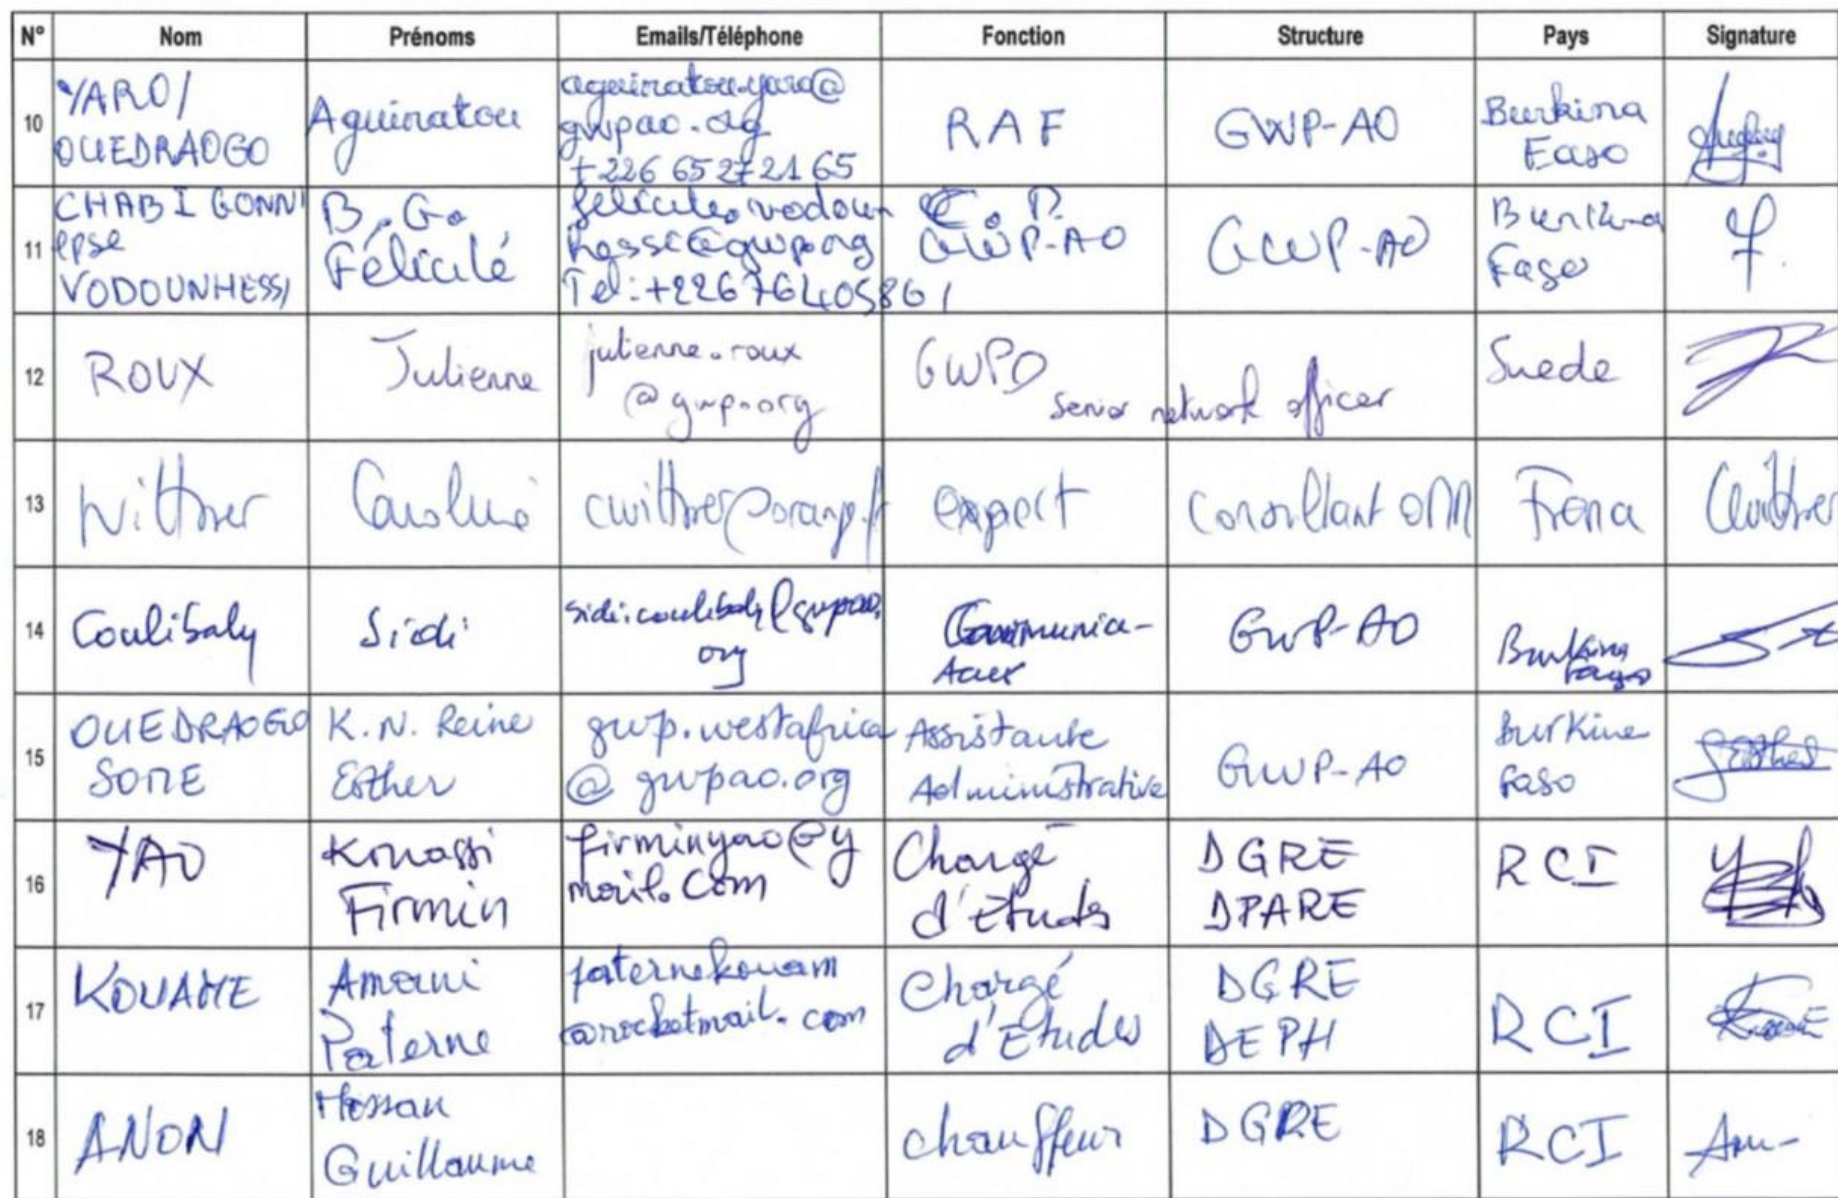 N° Nom Prénoms Emails/Téléphone Fonction Structure Pays Signature
10 YARO/ OUEDRAOGO Aguiratou aguiratou.yaro@ gwpao.org +226 65 27 21 65 RAF GWP-AO Burkina Faso
11 CHABI GONNI epse VODOUNHESSI B. G. Félicité felicite.vodoun hessi@gwp.org Tel: +226 76405861 GWP-AO GWP-AO Burkina Faso
12 ROUX Julienne julienne.roux @gwp.org GWPO senior network officer Suede
13 Wittner Caroline cwittner@orange.fr expert Consultant OM
14 Coulibaly Sidi sidi.coulibaly@gwpao. org GWP-AO Burkina Faso
15 OUEDRAOGO SOME K. N. Reine Esther gwp.westafrica @gwpao.org Assistante Administrative GWP-AO Burkina Faso
16 YAO Kouassi Firmin firminyao@y mail.com Chargé d'Etudes DGRE DPARE RCI
17 KOUAME Amani Paterne paternekouam @rocketmail.com Chargé d'Etudes DGRE DEPH RCI
18 ANON Guillaume chauffeur DGRE RCI